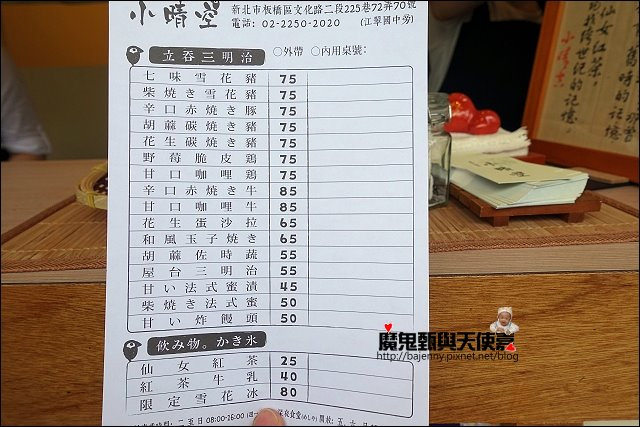 小晴空
新北市板橋區文化路二段225巷72弄70號
電話: 02-2250-2020 (江翠國中旁)
立吞三明治 ○外帶 ○內用桌號:
七味雪花豬 75
柴燒き雪花豬 75
辛口赤燒き豚 75
胡蔴碳燒き豬 75
花生碳燒き豬 75
野莓脆皮鶏 75
甘口咖哩鶏 75
辛口赤燒き牛 85
甘口咖哩牛 85
花生蛋沙拉 65
和風玉子燒き 65
胡蔴佐時蔬 55
屋台三明治 55
甘い法式蜜漬 45
柴燒き法式蜜 50
甘い炸饅頭 50
飲み物。かき氷
仙女紅茶 25
紅茶牛乳 40
限定雪花冰 80
二至日 08:00-16:00
仙女紅茶,
世紀的記憶。
的記憶
魔鬼甄與天使嘉
http://bajenny.pixnet.net/blog